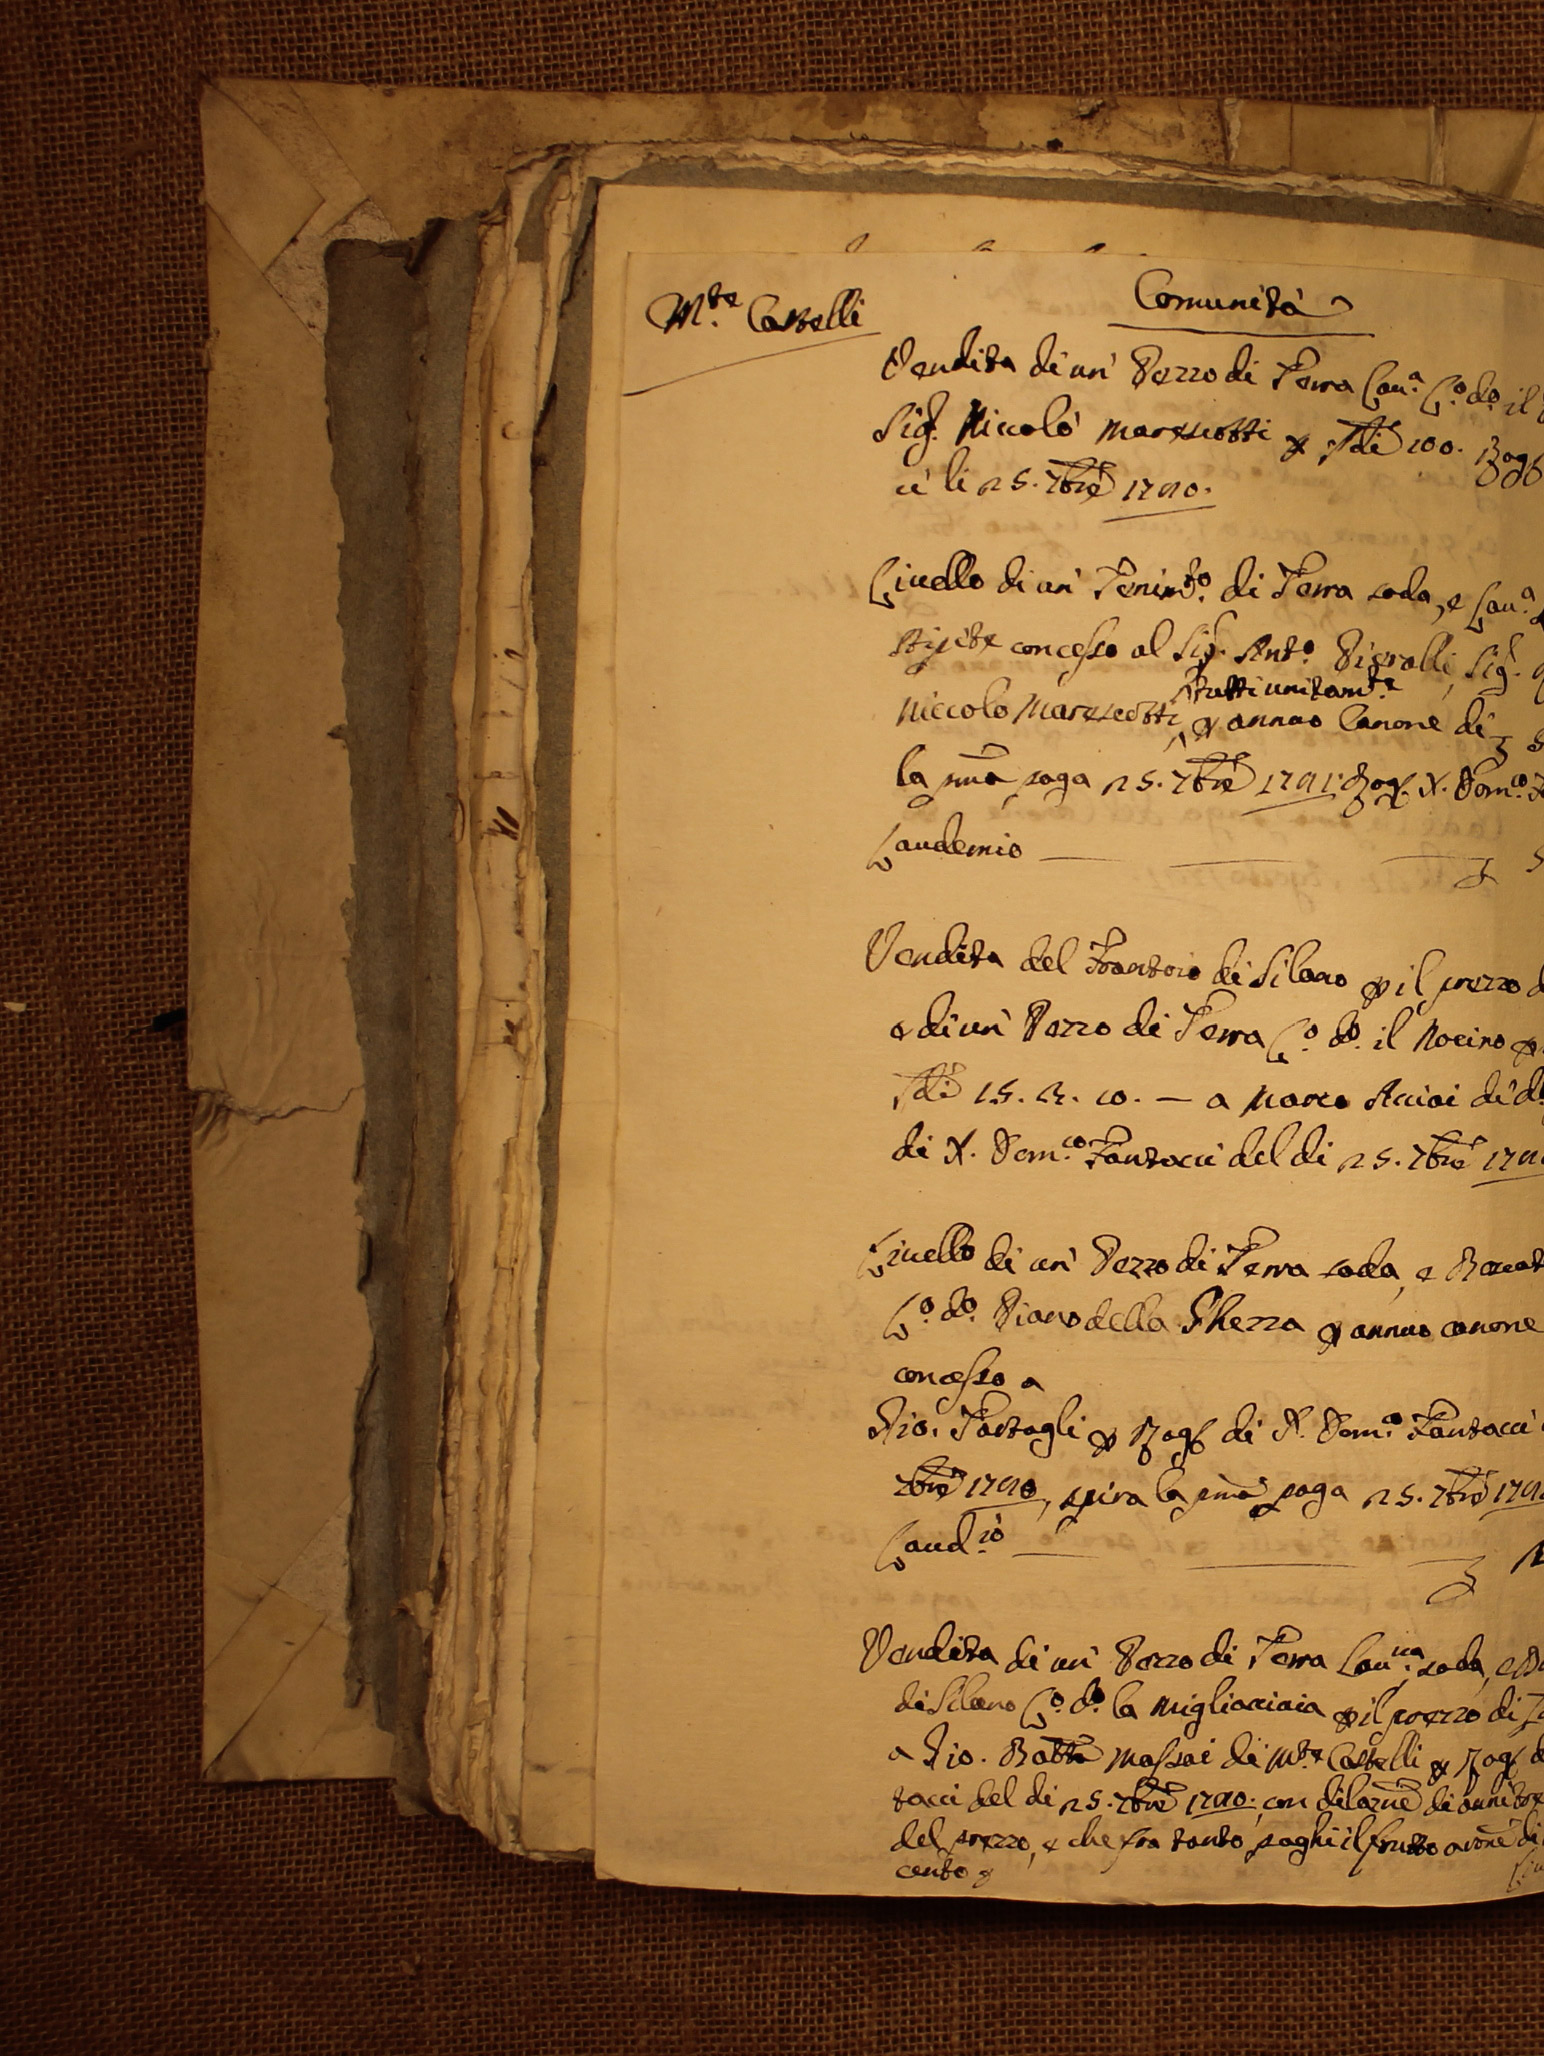 M.te Castelli
Comunità
Vendita di un' Pezzo di Terra Lau.a L.o d.o il
Sig.r Niccolò Marescotti p Sdi 100. Rog
ci li 25. 7bre 1790.
Livello di un' Tenim.to di Terra soda, e Lau.a
stipite concesso al Sig.r Ant.o Pieralli, Sig.r
tutti unitam.te
Niccolo Marescotti, p annuo Canone di
la pma paga 25. 7bre 1791. Rog. N. Dom.co
Laudemio
Vendita del Frantoio di Silano p il prezzo
e di un' Pezzo di Terra L.o d.o il Nocino p
Sdi 15. 2. 10. — a Marco
di N. Dom.co Fantacci del di 25. 7bre 179
Livello di un' Pezzo di Terra soda, e
L.o d.o Piano della p annuo canone
concesso a
Gio. Tartagli p Rog di N. Dom.co Fantacci
7bre 1790, spira la pma paga 25. 7bre 179
Laud.io
Vendita di un' Pezzo di Terra Lau.na soda, e
di Silano L.o d.o la Migliacciaia p il prezzo di
a Gio. Batta Massai di M.te Castelli p Rog
tacci del di 25. 7bre 1790. con dilazne di anni tre
del prezzo, e che fra tanto paghi il frutto a rone di
cento